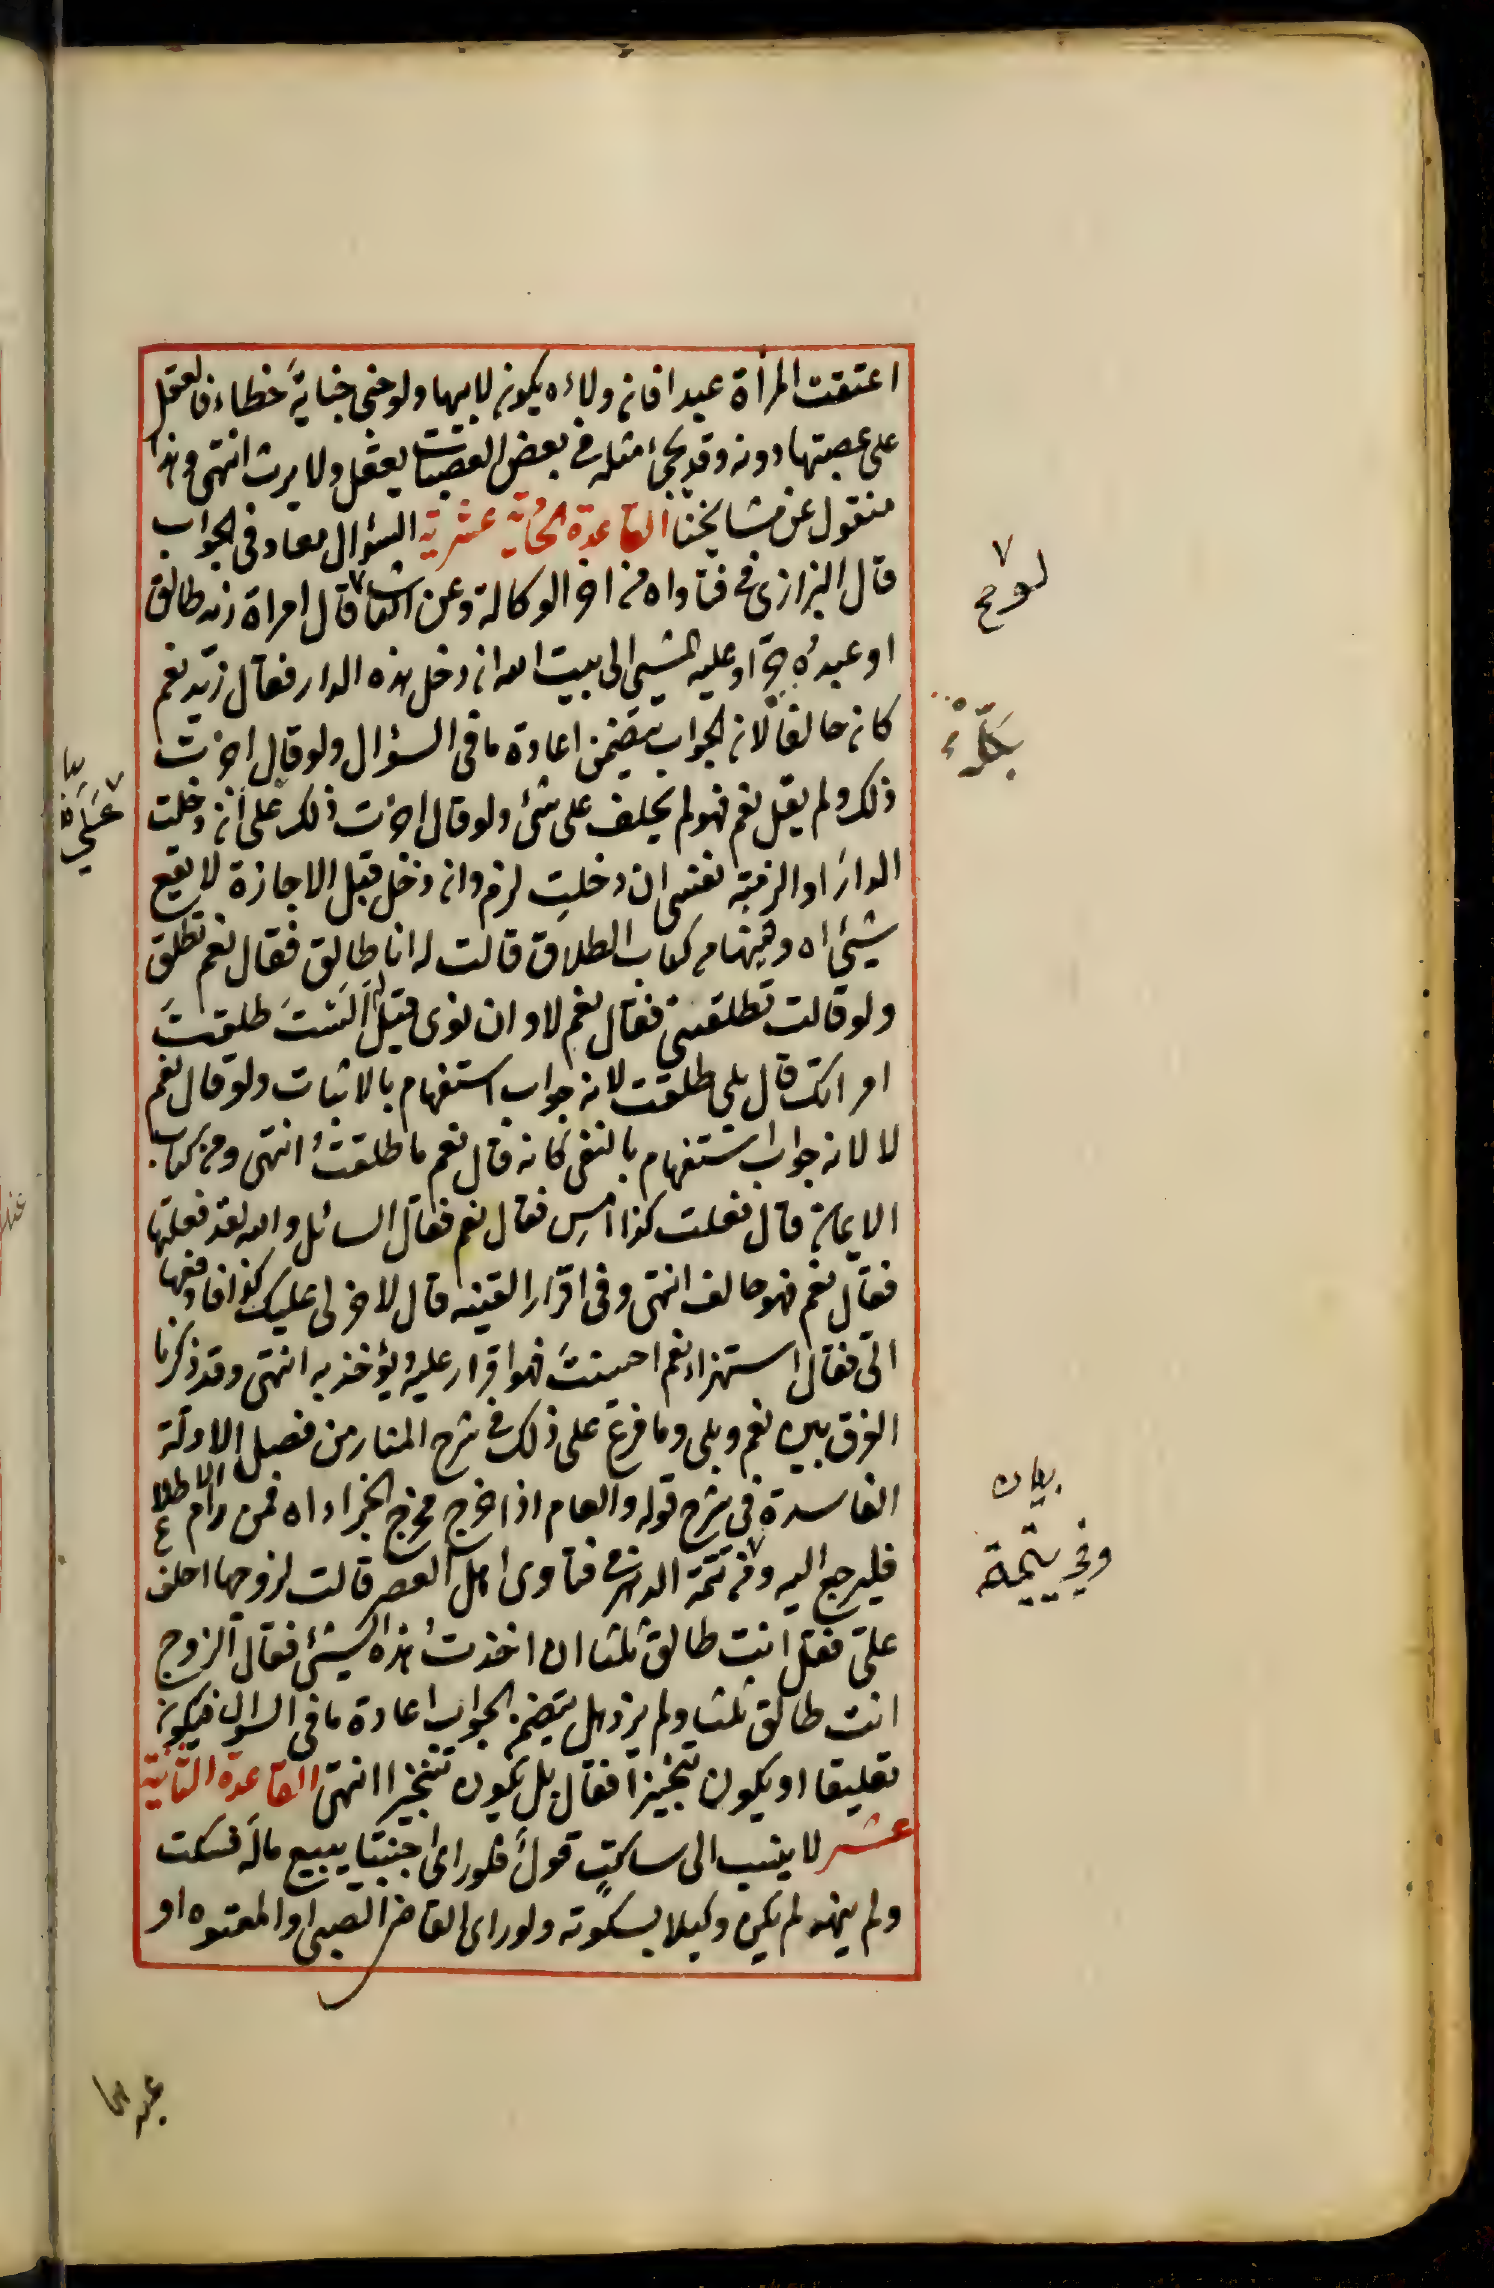 اعتقت المرأة عبدا فان ولاءه يكون لابيها ولو جنى جناية خطاء فالعقل
على عصبتها دونه وقد يجئ مثله فى بعض العصبات يعقل ولا يرث انتهى وهذا
منقول عن مشايخنا القاعدة الحادية عشرية السؤال معاد فى الجواب
قال البزازى فى فتاواه من اخر الوكالة وعن الثانى قال امراة زيد طالق
او عبده حر او عليه المشى الى بيت الله ان دخل هذه الدار فقال زيد نعم
كان حالفا لان الجواب يتضمن اعادة ما فى السؤال ولو قال اجزت
ذلك ولم يقل نعم فهو لم يحلف على شئ ولو قال اجزت ذلك على ان دخلت
الدار او الزمته نفسى ان دخلت لزم وان دخل قبل الاجازة لا يقع
شيئ اه وفيها من كتاب الطلاق قالت له انا طالق فقال نعم تطلق
ولو قالت تطلقنى فقال نعم لا وان نوى قيل له الست طلقت
امراتك قال بلى طلقت لانه جواب استفهام بالاثبات ولو قال نعم
لا لانه جواب استفهام بالنفى كانه قال نعم ما طلقت انتهى ومن كتاب
الايمان قال فعلت كذا امس فقال نعم فقال السائل والله لقد فعلتها
فقال نعم فهو حالف انتهى وفى اقرار القنيه قال لاخر لى عليك كذا فادفعها
الى فقال استهزاء نعم احسنت فهو اقرار عليه ويؤخذ به انتهى وقد ذكرنا
الفرق بين نعم وبلى وما فرع على ذلك فى شرح المنار من فصل الادلة
الفاسدة فى شرح قوله والعام اذا خرج مخرج الجزاء اه فمن رام الاطلاع
فليرجع اليه وفى تتمة الدهر فى فتاوى اهل العصر قالت لزوجها احلف
على فقل انت طالق ثلثا ان اخذت هذا الشيئ فقال الزوج
انت طالق ثلثا ولم يزد هل يتضمن الجواب اعادة ما فى السوال فيكون
تعليقا او يكون تنجيزا فقال بل يكون تنجيزا انتهى القاعدة الثانية
عشر لا ينسب الى ساكت قول فلو راى اجنبيا يبيع ماله فسكت
ولم ينهه لم يكن وكيلا بسكوته ولو راى القاضى الصبى او المعتوه او
بيان
وفي يتيمة
عبدهما